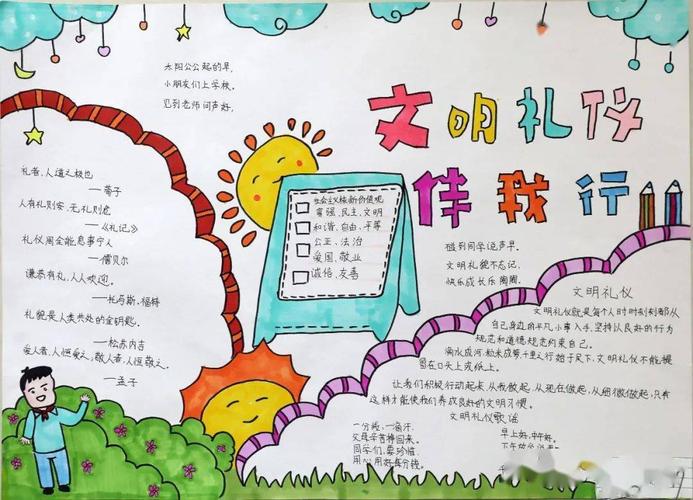 文明礼仪
伴我行
太阳公公起的早,
小朋友们上学校。
见到老师问声好,
碰到同学说声早。
文明礼貌不忘记,
快乐成长乐陶陶。
礼者,人道之极也
——荀子
人有礼则安,无礼则危
——《礼记》
礼仪周全能息事宁人
——儒贝尔
谦恭有礼,人人欢迎。
——托马斯·福特
礼貌是人类共处的金钥匙。
——松苏内吉
爱人者,人恒爱之,敬人者,人恒敬之。
——孟子
社会主义核心价值观
富强、民主、文明
和谐、自由、平等
公正、法治
爱国、敬业
诚信、友善
文明礼仪
文明礼仪就是每个人时时刻刻都从
自己身边的平凡小事入手,坚持以良好的行为
规范和道德规范约束自己。
滴水成河,粒米成箩,千里之行始于足下,文明礼仪不能
在口头上或纸上。
让我们积极行动起来,从我做起,从现在做起,从细微做起,只有
这样才能使我们养成良好的文明习惯。
文明礼仪歌谣
一分钱,一滴汗,
父母辛苦挣回来。
同学们,要珍惜,
用心用好每分钱。
早上好,中午好,